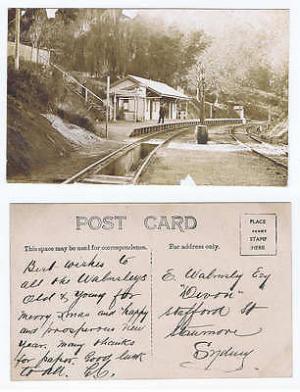 POST CARD
This space may be used for correspondence.
For address only.
PLACE
PENNY
STAMP
HERE
Best wishes to
all the Walmsleys
Old & Young for
merry Xmas and happy
and prosperous new
year. many thanks
for papor. Good luck
to all. E.C.
E. Walmsly Esq
"Devon"
Stafford St
Stanmore
Sydney